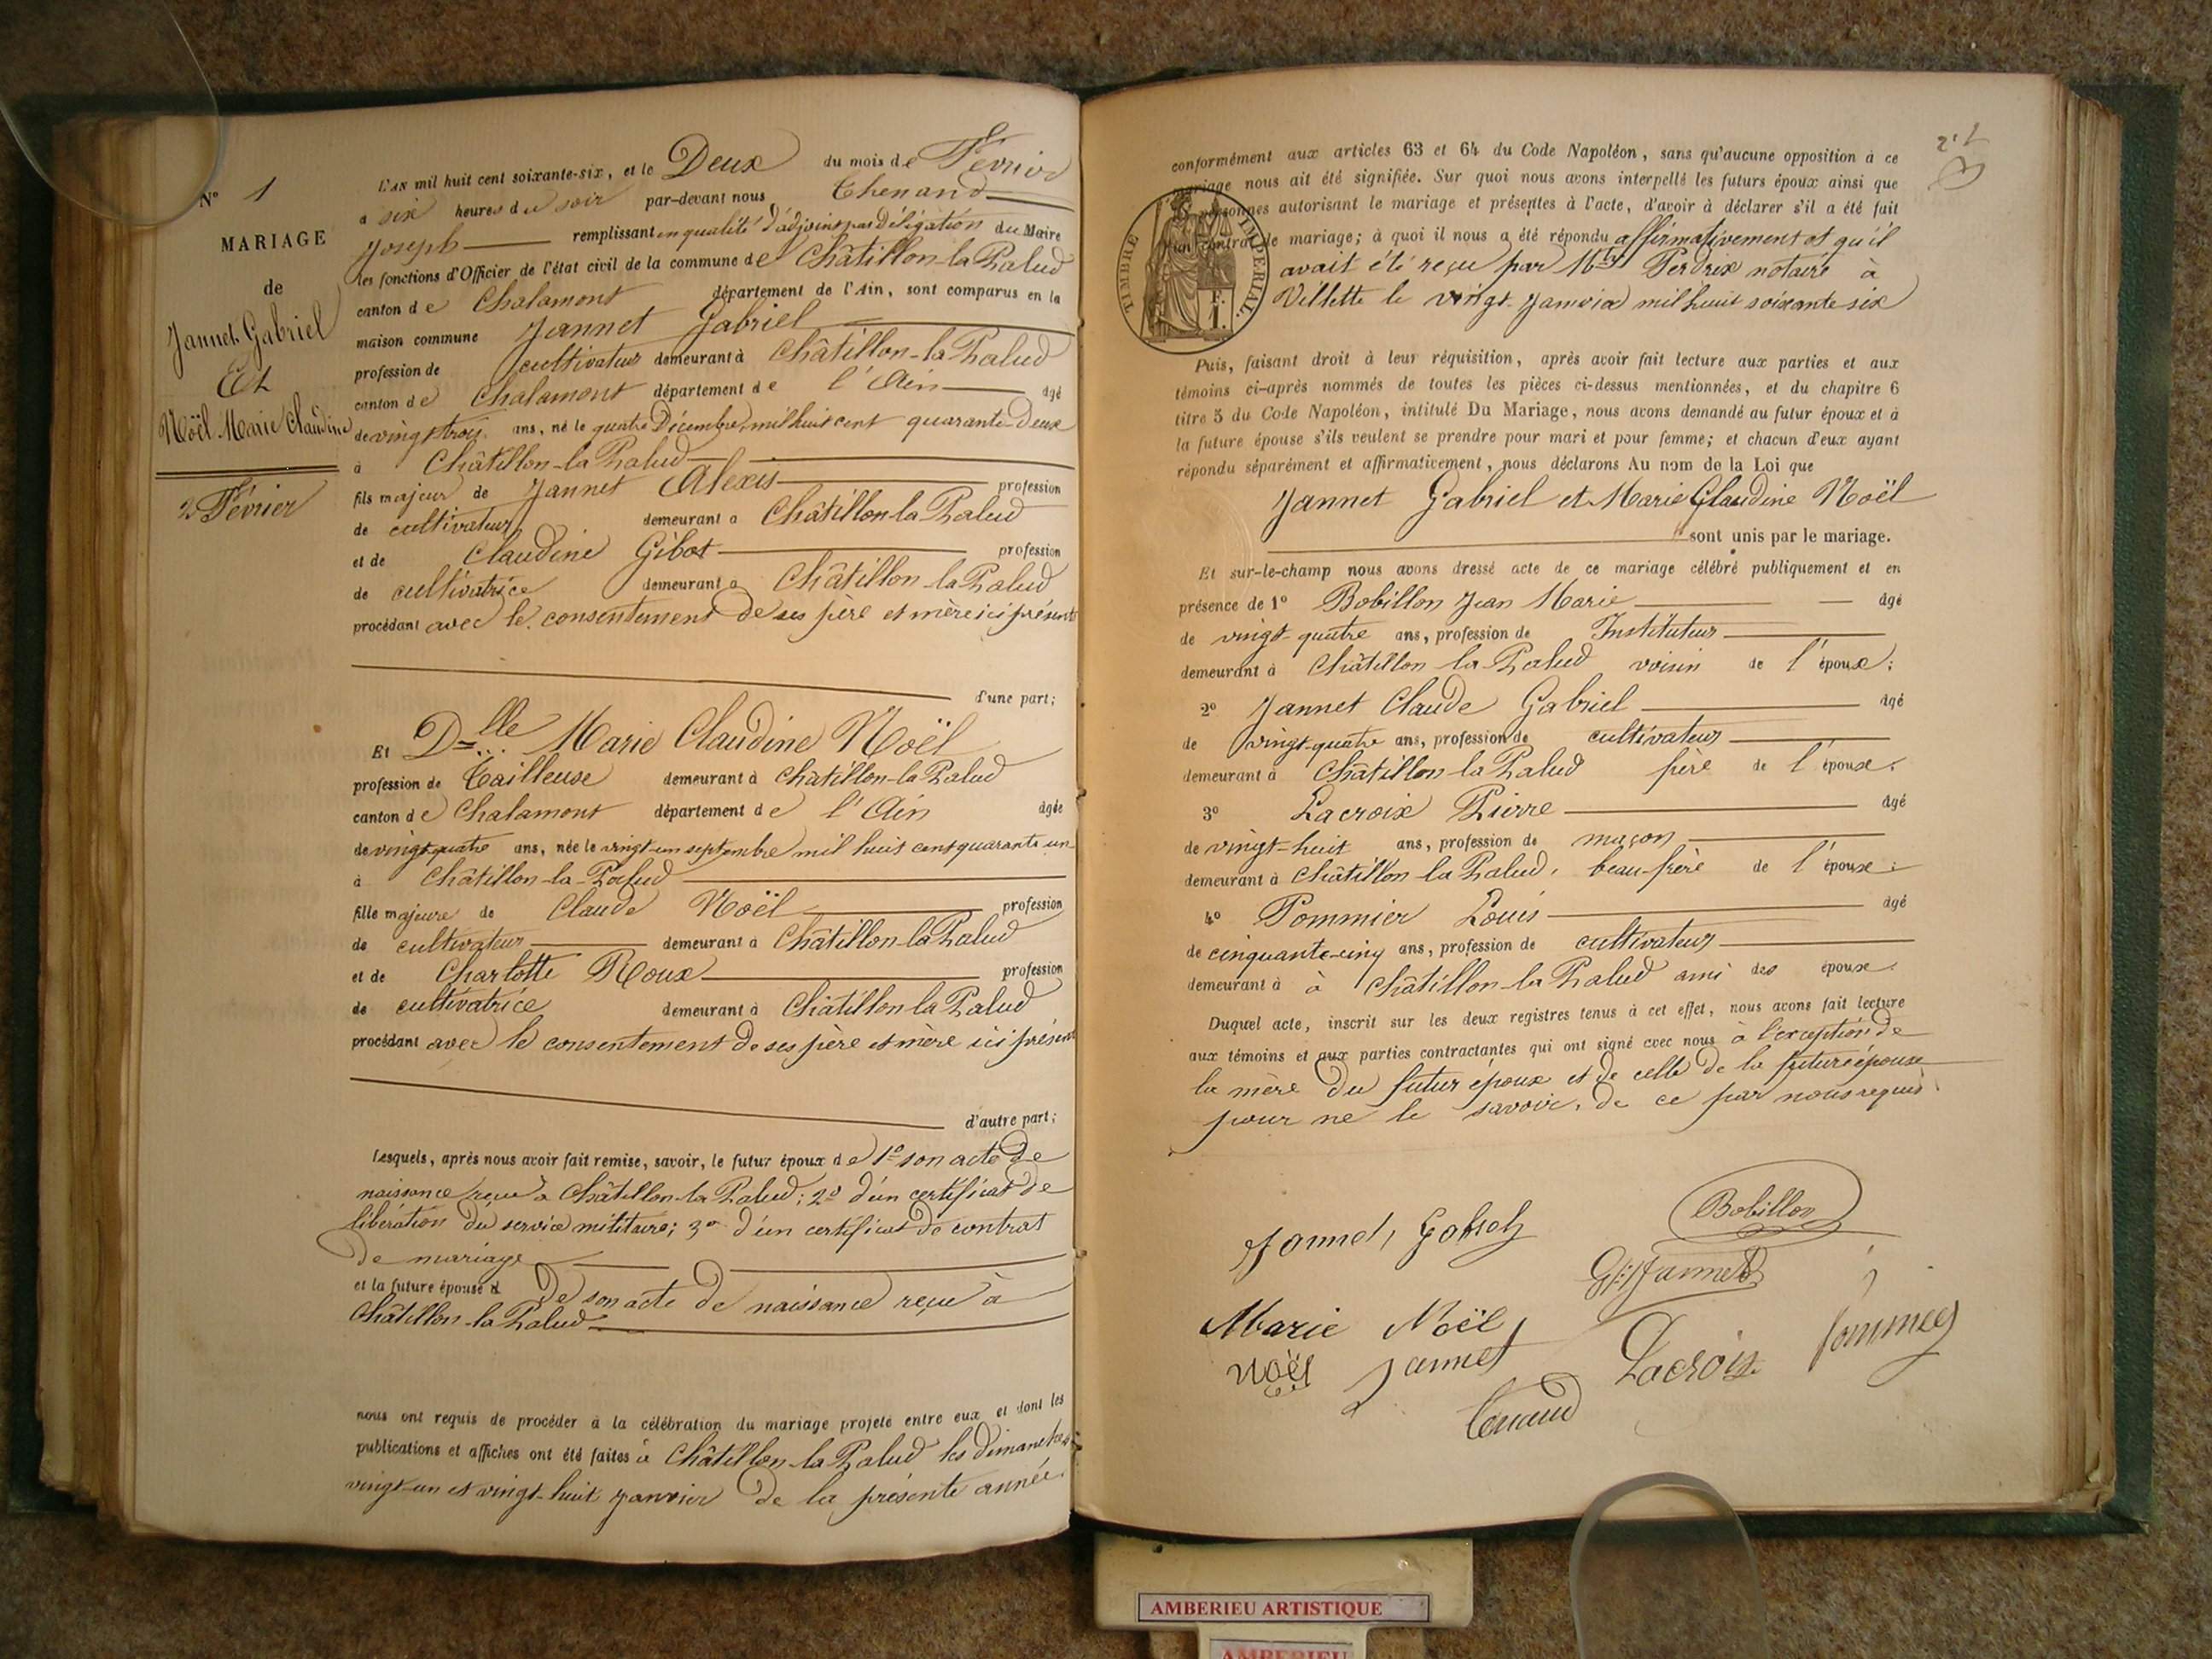 N° 1
MARIAGE
de
Jannet Gabriel
Et
Noël Marie Claudine
2 Février
L'AN mil huit cent soixante-six, et le Deux du mois de Février
à six heures du soir par-devant nous Thenand
Joseph remplissant en qualité d'adjoint par Délégation du Maire
les fonctions d'Officier de l'état civil de la commune de Châtillon-la-Palud
canton de Chalamont département de l'Ain, sont comparus en la
maison commune Jannet Gabriel
profession de cultivateur demeurant à Châtillon-la-Palud
canton de Chalamont département de l'Ain âgé
de vingt trois ans, né le quatre Décembre mil huit cent quarante-Deux
à Châtillon-la-Palud
fils majeur de Jannet Alexis profession
de cultivateur demeurant à Châtillon-la-Palud
et de Claudine Gibot profession
de cultivatrice demeurant à Châtillon-la-Palud
procédant avec le consentement de ses père et mère ici présents
d'une part;
Et Dlle Marie Claudine Noël
profession de Tailleuse demeurant à Châtillon-la-Palud
canton de Chalamont département de l'Ain âgée
de vingt quatre ans, née le vingt-un septembre mil huit cent quarante un
à Châtillon-la-Palud
fille majeure de Claude Noël profession
de cultivateur demeurant à Châtillon-la-Palud
et de Charlotte Roux profession
de cultivatrice demeurant à Châtillon-la-Palud
procédant avec le consentement de ses père et mère ici présents
d'autre part;
Lesquels, après nous avoir fait remise, savoir, le futur époux de 1° son acte de
naissance reçu à Châtillon-la-Palud; 2° d'un certificat de
libération du service militaire; 3° d'un certificat de contrat
de mariage
et la future épouse d De son acte de naissance reçu à
Châtillon-la-Palud
nous ont requis de procéder à la célébration du mariage projeté entre eux et dont les
publications et affiches ont été faites à Châtillon-la-Palud les dimanches
vingt-un et vingt-huit janvier de la présente année
conformément aux articles 63 et 64 du Code Napoléon, sans qu'aucune opposition à ce
mariage nous ait été signifiée. Sur quoi nous avons interpellé les futurs époux ainsi que
personnes autorisant le mariage et présentes à l'acte, d'avoir à déclarer s'il a été fait
un contrat de mariage; à quoi il nous a été répondu affirmativement et qu'il
avait été reçu par Mtre Perdrix notaire à
Villette le vingt janvier mil huit soixante six
TIMBRE IMPERIAL
F.
1.
Puis, faisant droit à leur réquisition, après avoir fait lecture aux parties et aux
témoins ci-après nommés de toutes les pièces ci-dessus mentionnées, et du chapitre 6
titre 5 du Code Napoléon, intitulé Du Mariage, nous avons demandé au futur époux et à
la future épouse s'ils veulent se prendre pour mari et pour femme; et chacun d'eux ayant
répondu séparément et affirmativement, nous déclarons Au nom de la Loi que
Jannet Gabriel et Marie Claudine Noël
sont unis par le mariage.
Et sur-le-champ nous avons dressé acte de ce mariage célébré publiquement et en
présence de 1° Bobillon Jean Marie âgé
de vingt-quatre ans, profession de Instituteur
demeurant à Châtillon-la-Palud voisin de l'époux;
2° Jannet Claude Gabriel âgé
de vingt-quatre ans, profession de cultivateur
demeurant à Châtillon-la-Palud frère de l'époux.
3° Lacroix Pierre âgé
de vingt-huit ans, profession de maçon
demeurant à Châtillon la Palud, beau-frère de l'époux;
4° Pommier Louis âgé
de cinquante-cinq ans, profession de cultivateur
demeurant à à Châtillon-la-Palud ami des époux.
Duquel acte, inscrit sur les deux registres tenus à cet effet, nous avons fait lecture
aux témoins et aux parties contractantes qui ont signé avec nous à l'exception de
la mère du futur époux et de celle de la future épouse
pour ne le savoir, de ce par nous requis.
Jannet Gabriel
Bobillon
G. Jannet
Marie Noël
Noël Jannet
Lacroix
Pommier
Tenaud
AMBERIEU ARTISTIQUE
AMBERIEU